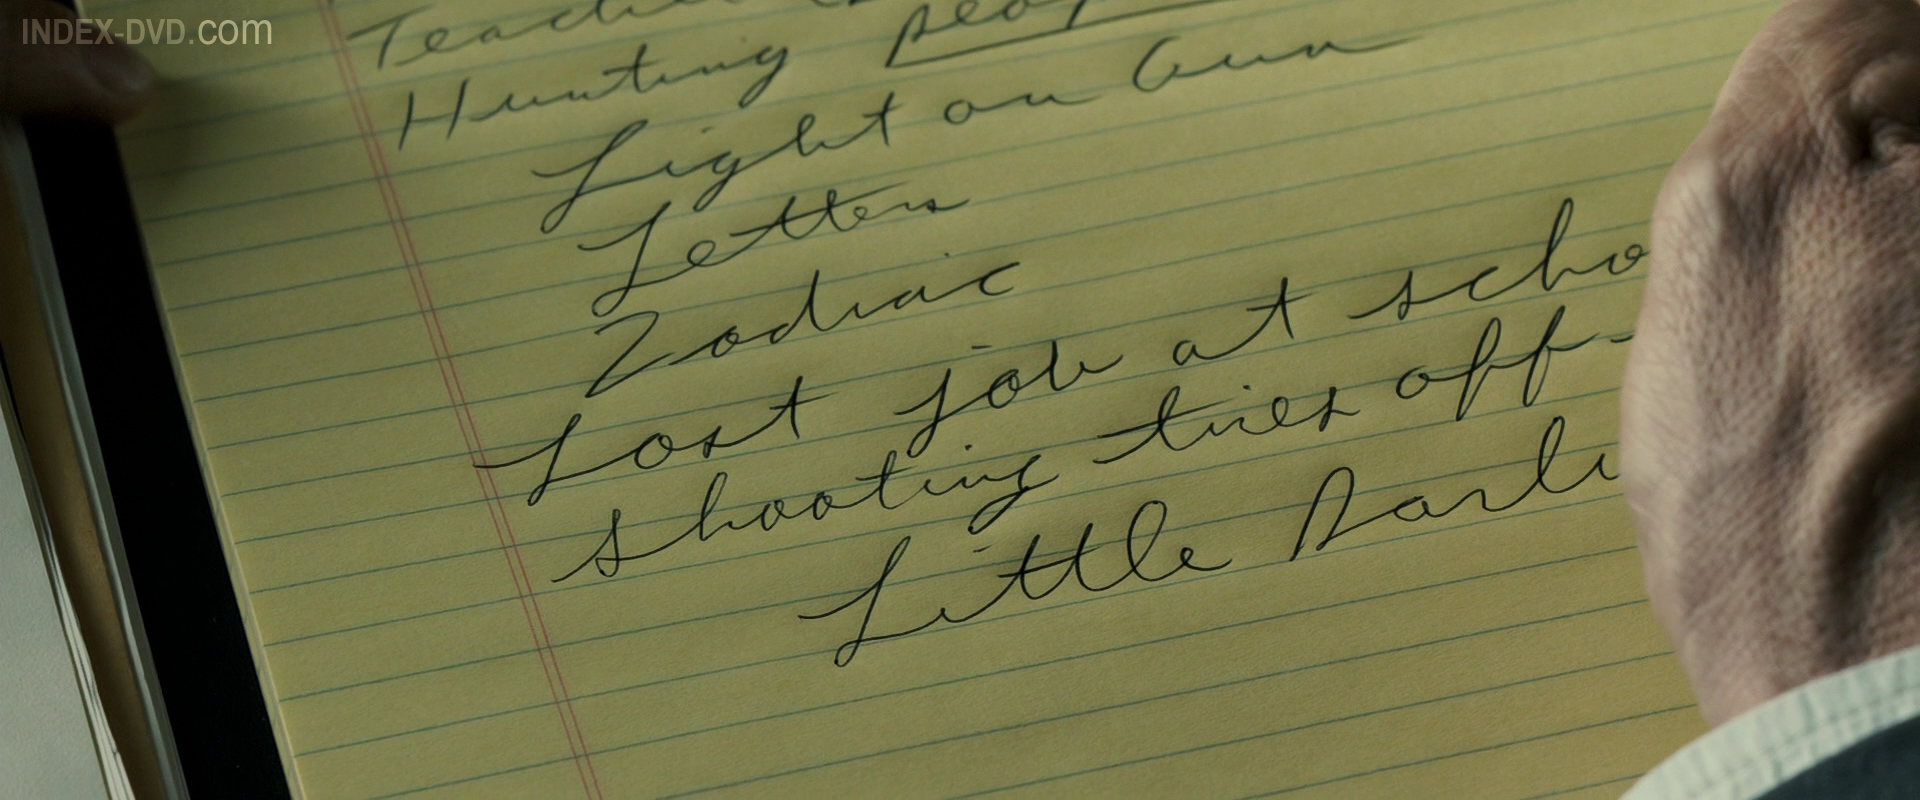 INDEX-DVD.com
Hunting
Light on Gun
Letters
Zodiac
Lost job at scho
shooting tires off-
Little Darli